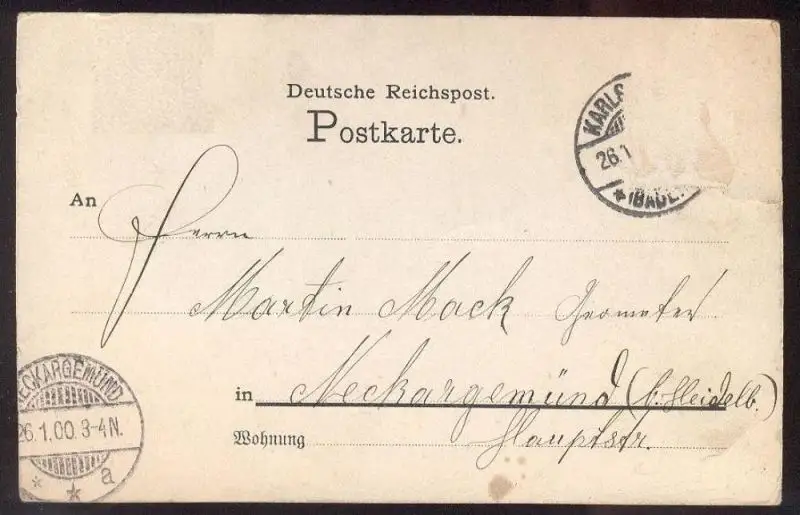 Deutsche Reichspost.
Postkarte.
KARLS
26.1
(BADEN
An
Herrn
Martin Mack Geometer
in Neckargemünd (b. Heidelb.)
Wohnung Hauptstr.
NECKARGEMÜND
26.1.00.3-4N.
* * a